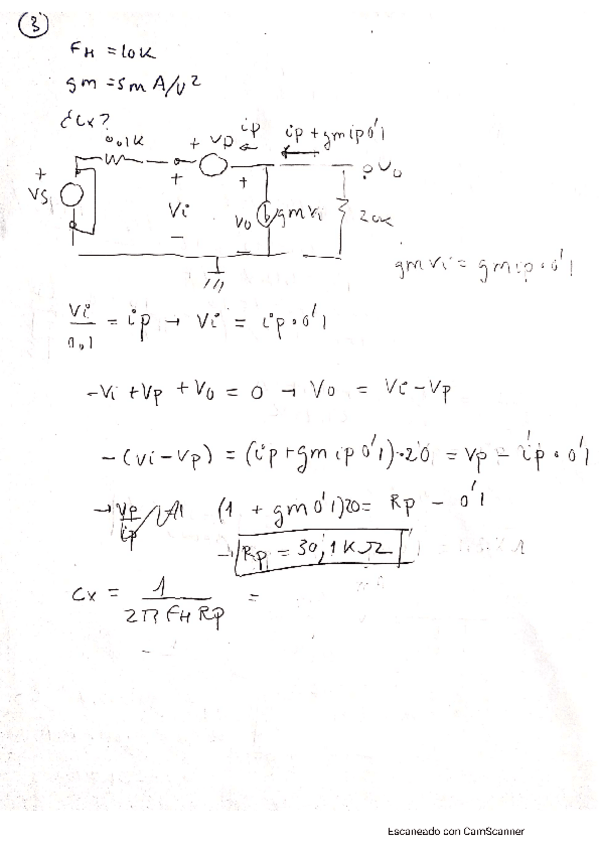 3
FH = 10K
gm = 5m A/V2
¿Cx?
0,1K
+ VP
ip
ip + gm ip 0'1
+
VS
+
Vi
-
+
Vo
-
gmVi
20K
Vo
gm Vi = gm ip · 0'1
Vi/0,1 = ip → Vi = ip · 0'1
-Vi + Vp + Vo = 0 → Vo = Vi - Vp
-(Vi - Vp) = (ip + gm ip 0'1) · 20 = Vp - ip · 0'1
→ Vp/ip (1 + gm 0'1)20 = Rp - 0'1
→ Rp = 30,1K Ω
Cx = 1/2π FH Rp =
Escaneado con CamScanner